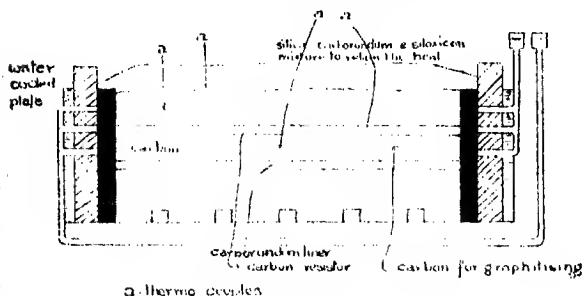 a a
a a
silica carborundum & siloxicon
mixture to retain the heat
water
cooled
plate
carbon
carborundum liner
carbon resistor
carbon for graphitising
a. thermo couples